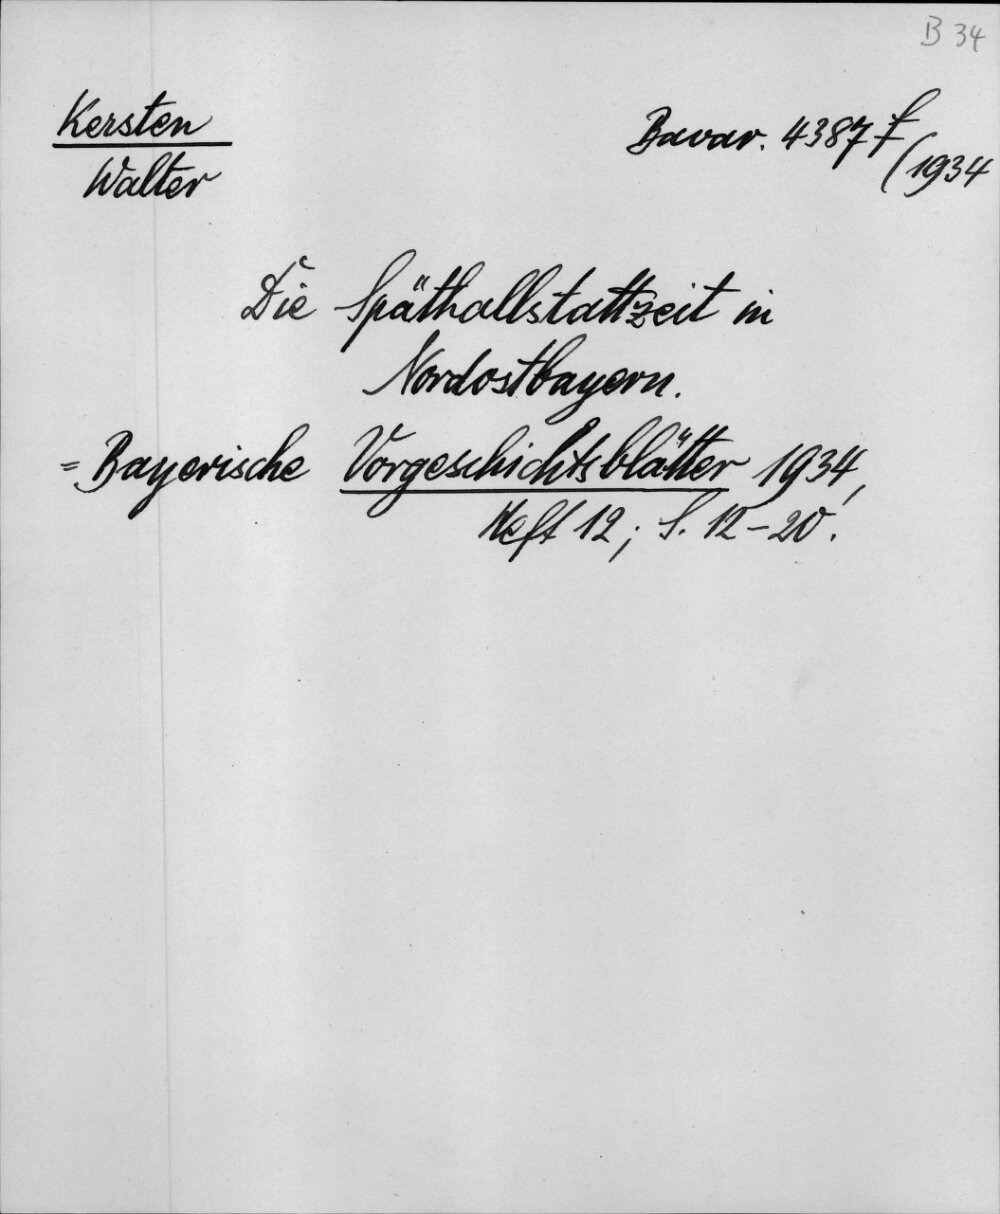 B 34
Kersten
Bavar. 4387 f
(1934
Walter
Die Späthallstattzeit in
Nordostbayern.
= Bayerische Vorgeschichtsblätter 1934,
Heft 12; S. 12-20.